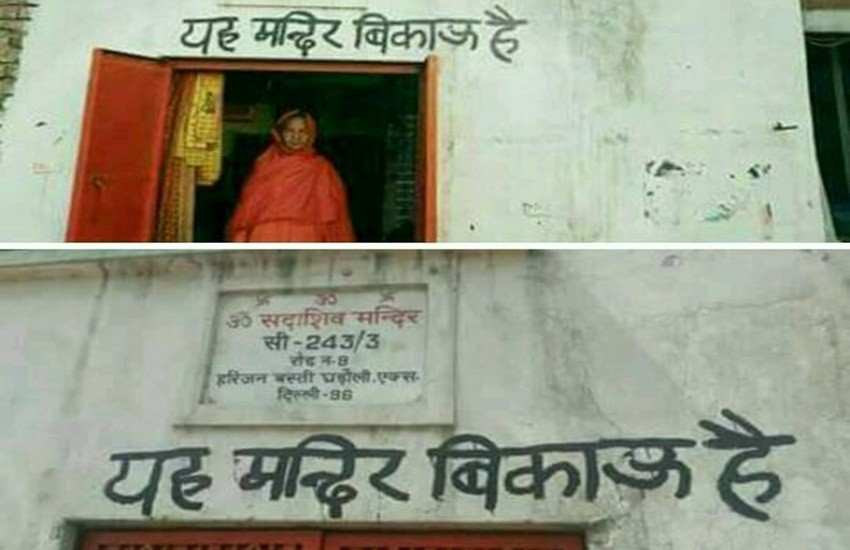 यह मन्दिर बिकाऊ है
卐 ॐ 卐
ॐ सदाशिव मन्दिर
सी-243/3
रोड न-8
हरिजन बस्ती घड़ौली.एक्स.
दिल्ली-96
यह मन्दिर बिकाऊ है